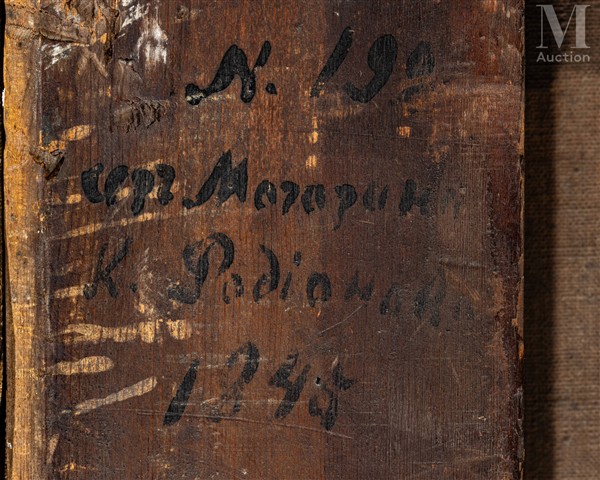 M
Auction
N. 199
серг Магарина
К. Родіонова
1845